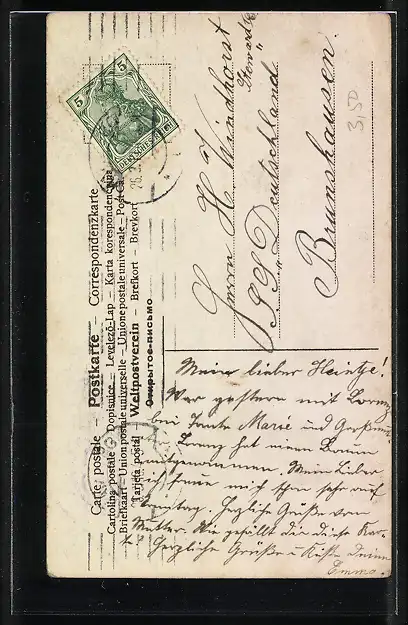 Carte postale – Postkarte – Correspondenzkarte
Cartolina postale – Dopisnice – Levelező-Lap – Karta korespondencyjna
Briefkaart – Union postale universelle – Unione postale universale – Post Ca
Tarjeta postal – Weltpostverein – Brefkort – Brevkort
Открытое-письмо
5
5
DEUTSCHES
Herrn H. Windhorst
Steward
S. S. "Deutschland"
Brunshausen.
3,50
Meine lieber Heintje!
War gestern mit Lorenz
bei Tante Marie und
Lorenz hat einen
mitgenommen. Mein Lieber
ich freue mich schon sehr auf
Sonntag. Herzliche Grüße von
Mutter. Wie gefällt dir diese Kar-
te. Herzliche Grüße u. Küße Deine
Emma.